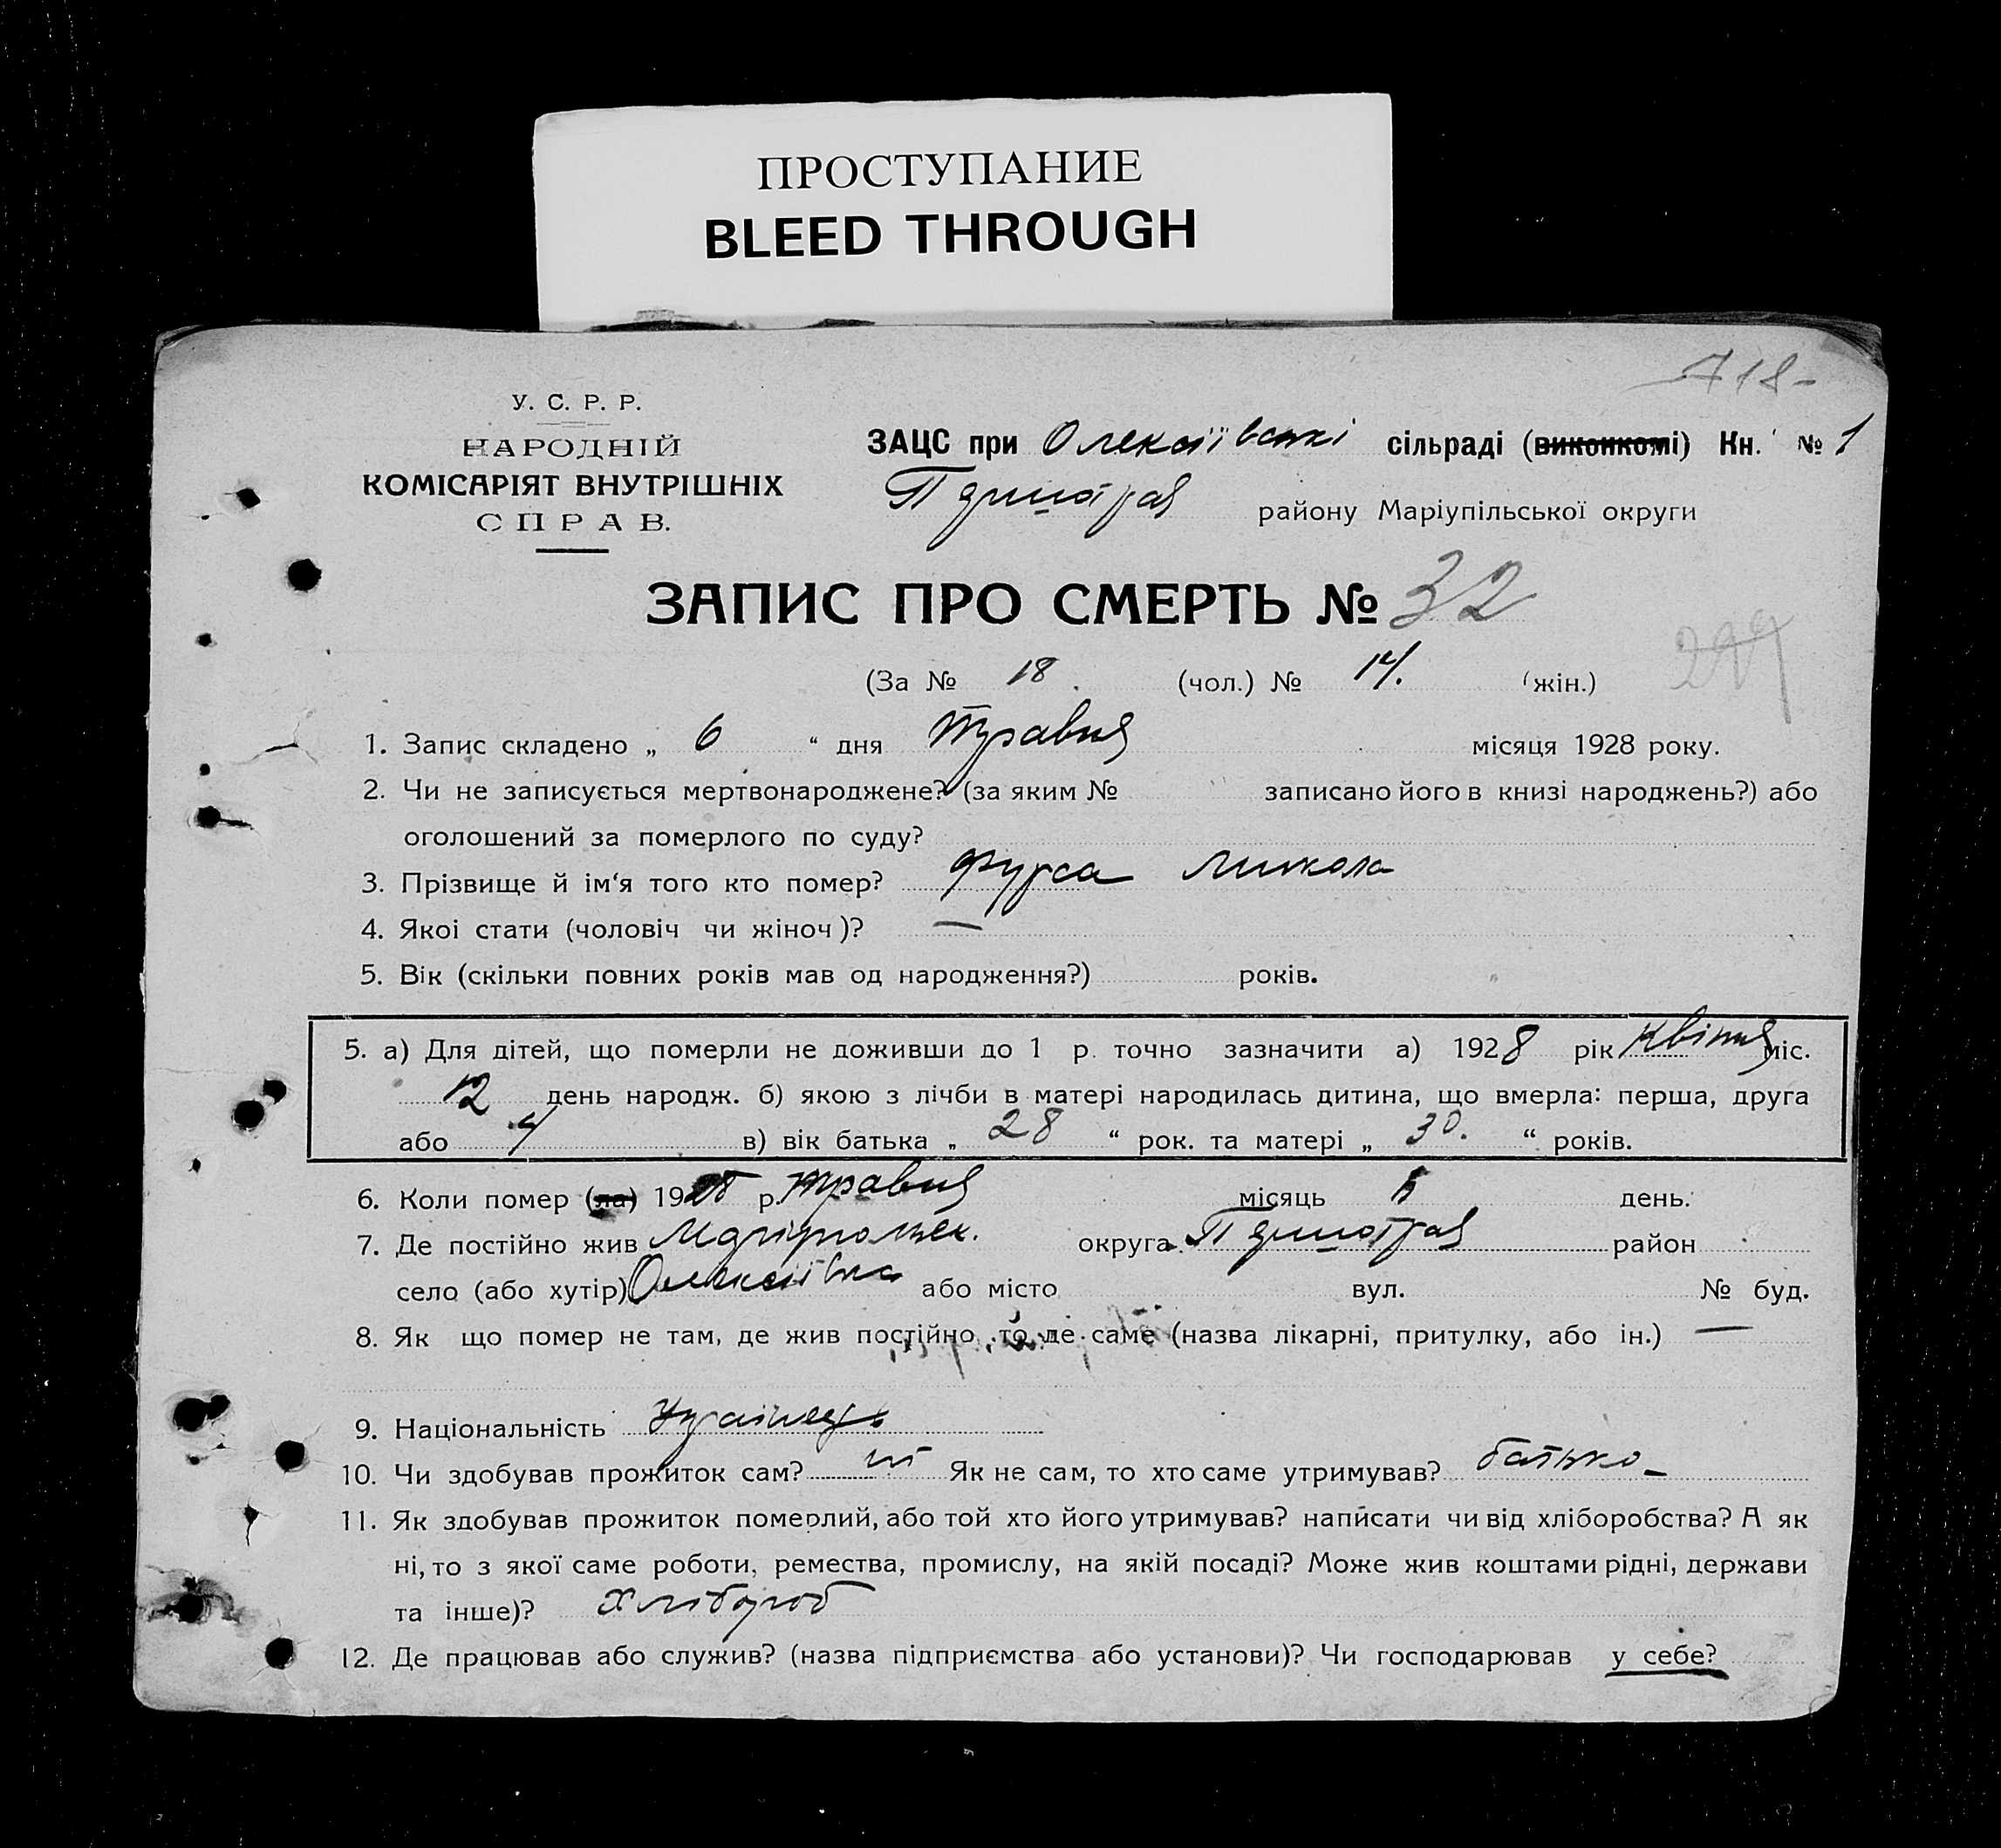 ПРОСТУПАНИЕ
BLEED THROUGH
718-
У. С. Р. Р.
НАРОДНІЙ
КОМІСАРІЯТ ВНУТРІШНІХ
СПРАВ.
ЗАЦС при Олексіївські сільраді (виконкомі) Кн. № 1
району Маріупільської округи
ЗАПИС ПРО СМЕРТЬ № 32
299
(За № 18. (чол.) № 14. (жін.)
1. Запис складено „ 6 “ дня Травня місяця 1928 року.
2. Чи не записується мертвонароджене? (за яким № записано його в книзі народжень?) або
оголошений за померлого по суду?
3. Прізвище й ім‘я того кто помер? Фурса Микола
4. Якоі стати (чоловіч чи жіноч)? —
5. Вік (скільки повних років мав од народження?) років.
5. а) Для дітей, що померли не доживши до 1 р. точно зазначити а) 1928 рік Квітня міс.
12 день народж. б) якою з лічби в матері народилась дитина, що вмерла: перша, друга
або 4 в) вік батька „ 28 “ рок. та матері „ 30. “ років.
6. Коли помер (ла) 1928 р. Травня місяць 5 день.
7. Де постійно жив округа район
село (або хутір) Олексіївка або місто вул. № буд.
8. Як що помер не там, де жив постійно, то де саме (назва лікарні, притулку, або ін.) —
9. Національність Українець
10. Чи здобував прожиток сам? ні Як не сам, то хто саме утримував? батько
11. Як здобував прожиток померлий, або той хто його утримував? написати чи від хліборобства? А як
ні, то з якої саме роботи, ремества, промислу, на якій посаді? Може жив коштами рідні, держави
та інше)? Хлібороб
12. Де працював або служив? (назва підприємства або установи)? Чи господарював у себе?